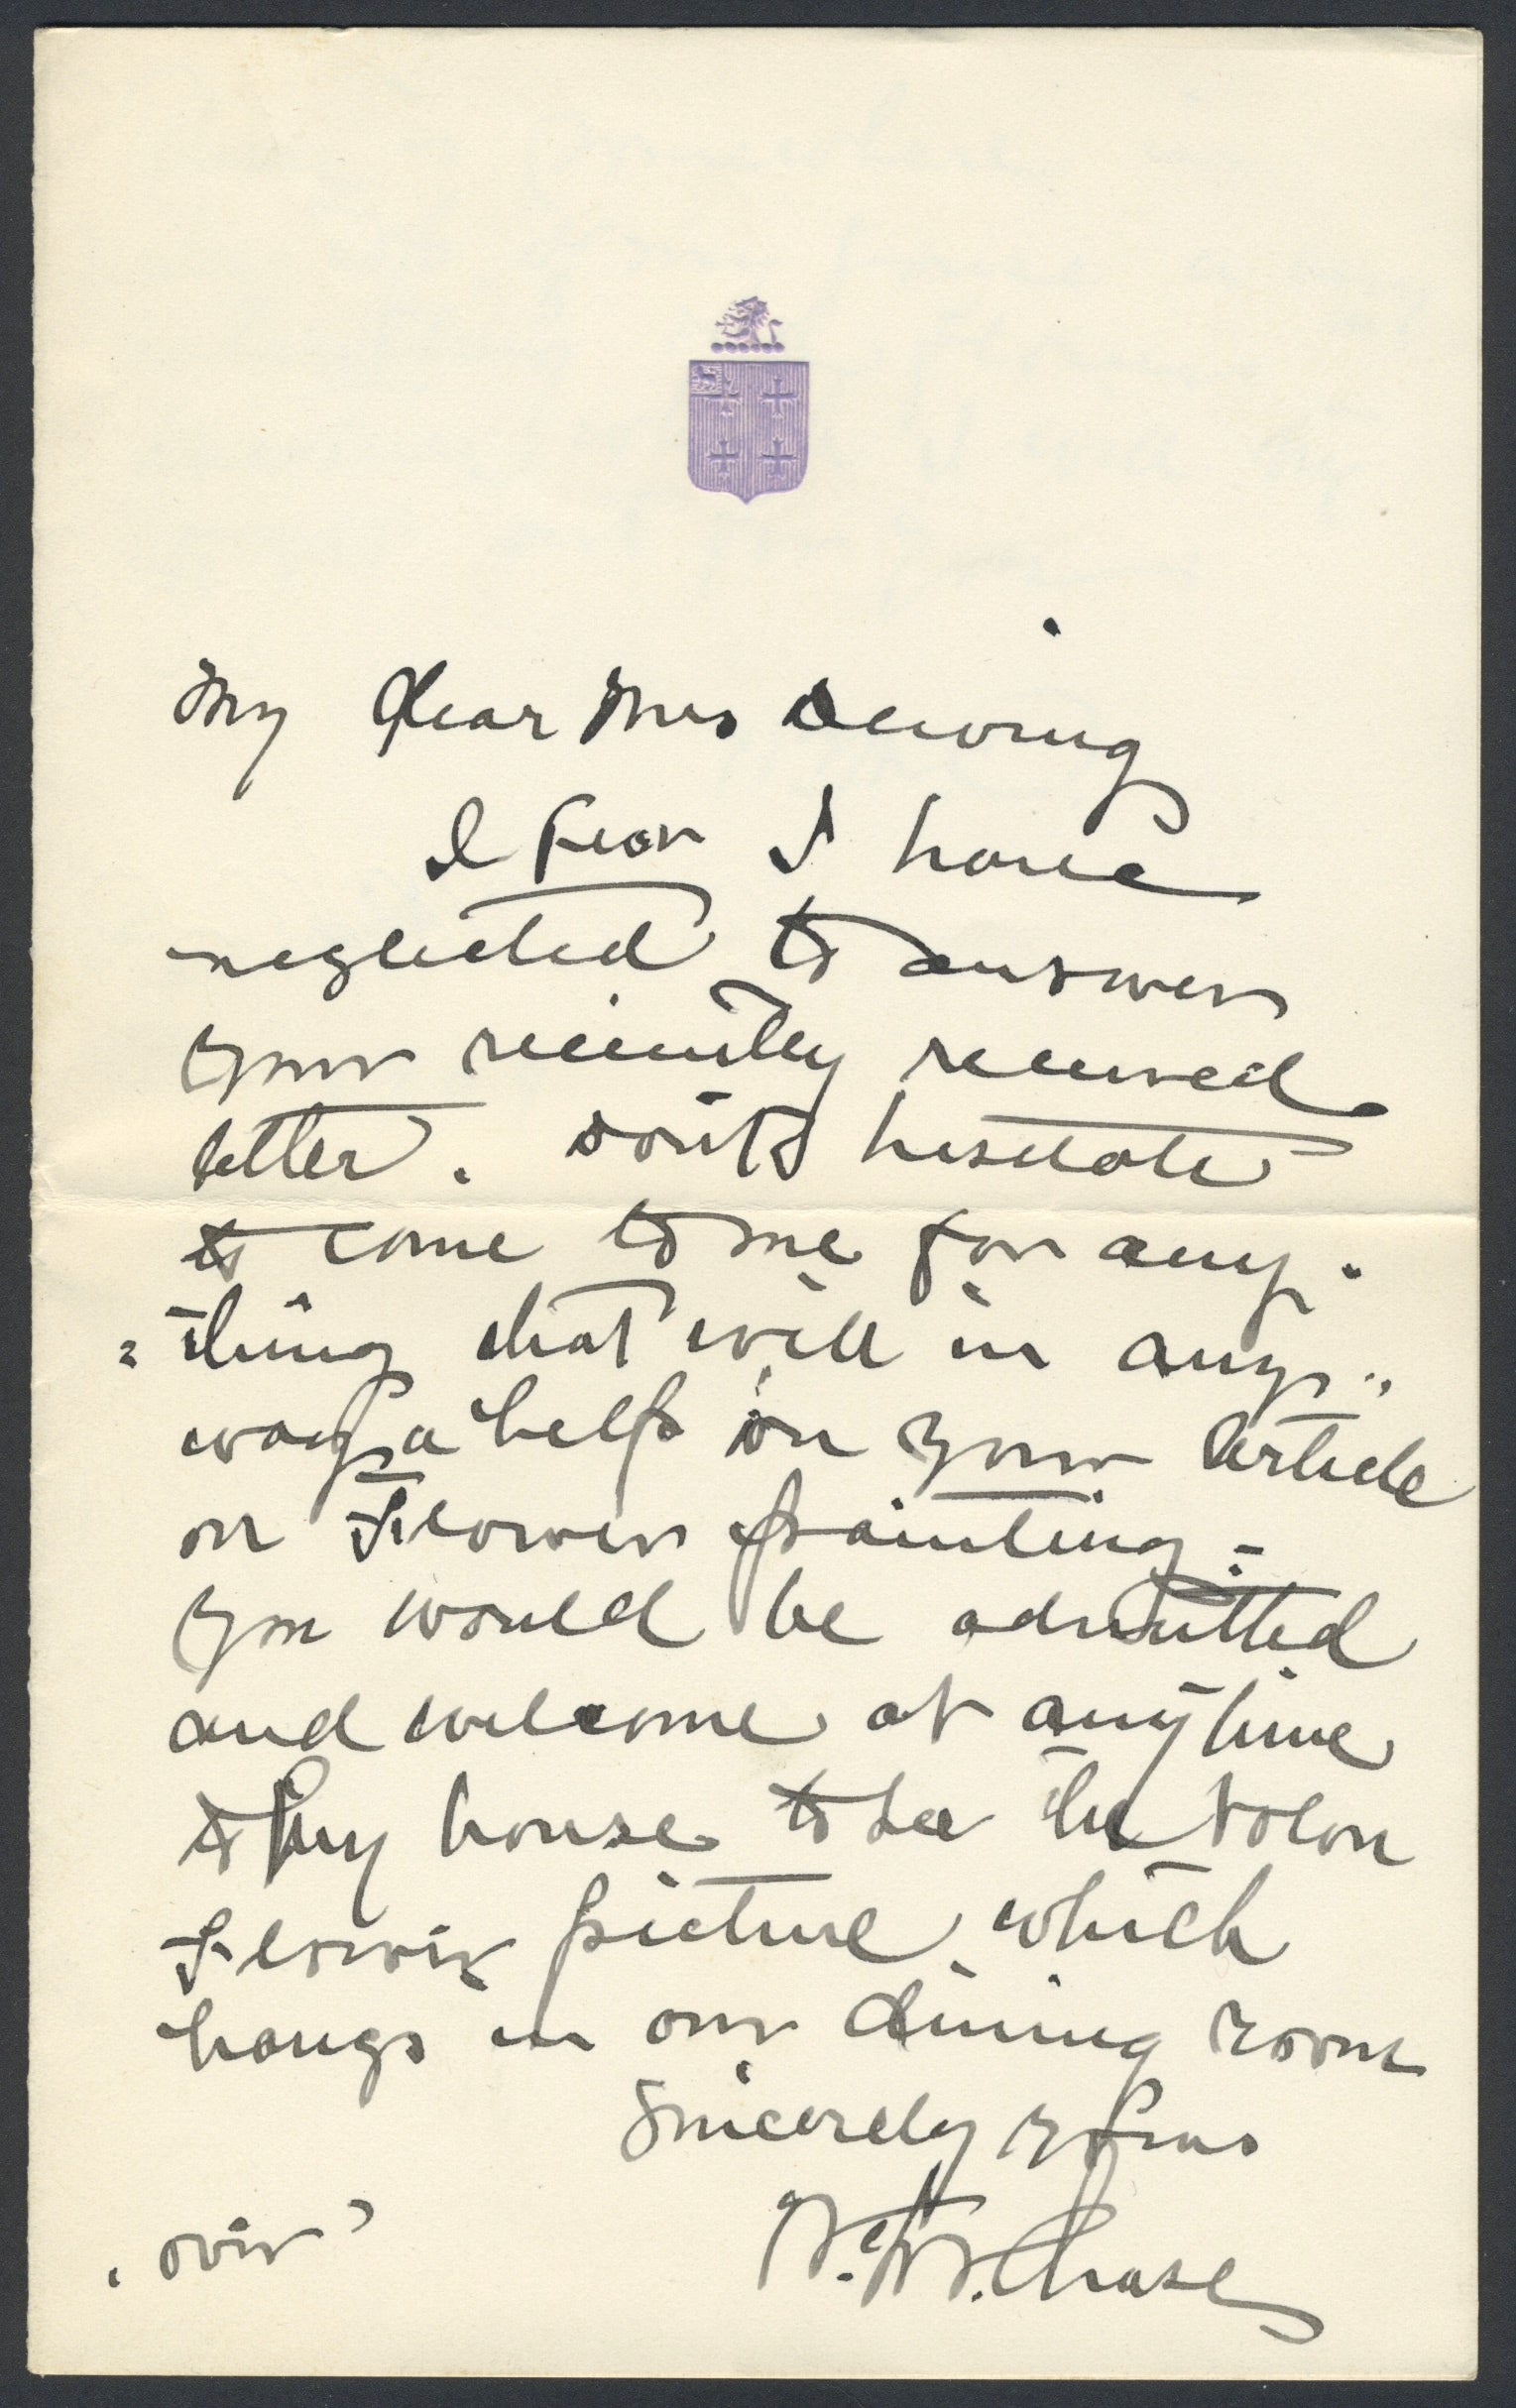 My Dear Mrs Dewing
I fear I have
neglected to answer
your recently received
letter. Don't hesitate
to come to me for any-
-thing that will in any
way a help in your Article
on Flower painting.
you would be admitted
and welcome at anytime
to my house to see the Volon
Flower picture which
hangs in our dining room
Sincerely yours
Wm. M. Chase
over